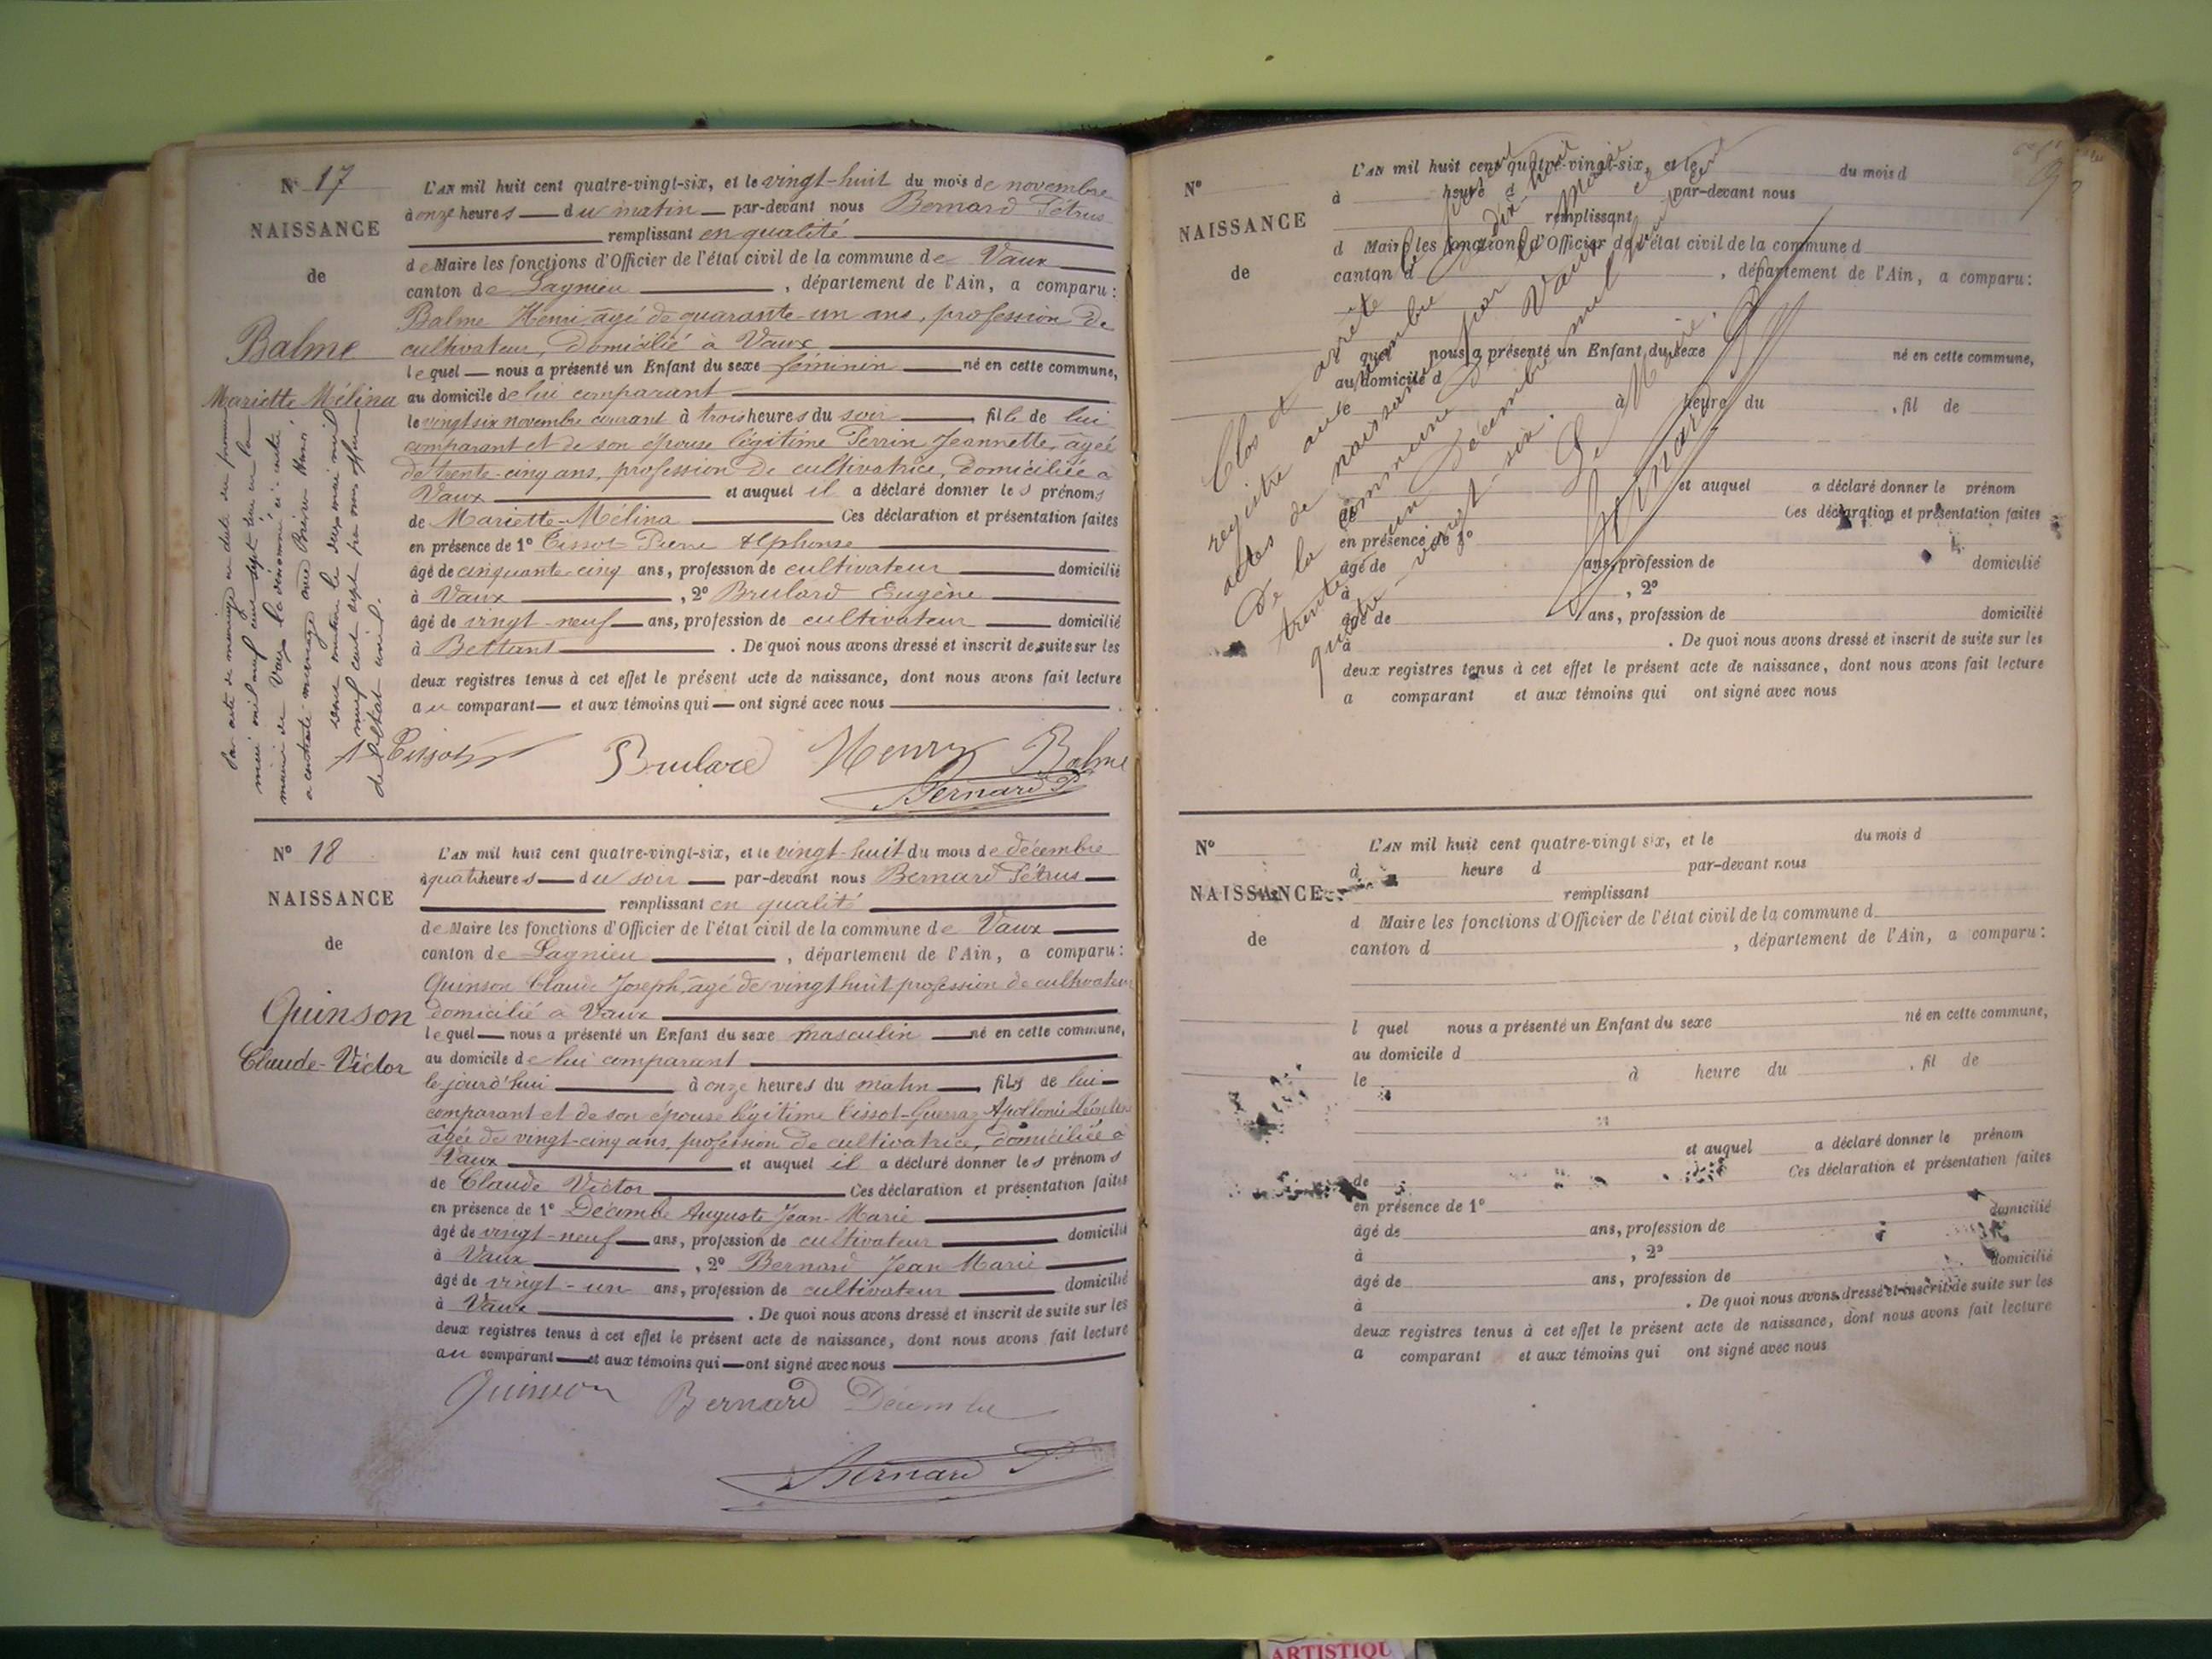 N° 17
NAISSANCE
de
Balme
Mariette Mélina
L'AN mil huit cent quatre-vingt-six, et le vingt-huit du mois de novembre
à onze heures du matin par-devant nous Bernard Pétrus
remplissant en qualité
de Maire les fonctions d'Officier de l'état civil de la commune de Vaux
canton de Lagnieu , département de l'Ain, a comparu :
Balme Henri âgé de quarante-un ans, profession de
cultivateur, domicilié à Vaux
lequel nous a présenté un Enfant du sexe féminin né en cette commune,
au domicile de lui comparant
le vingt six novembre courant à trois heures du soir fille de lui
comparant et de son épouse légitime Perrin Jeannette, âgée
de trente-cinq ans, profession de cultivatrice, domiciliée à
Vaux et auquel il a déclaré donner les prénoms
de Mariette-Mélina Ces déclaration et présentation faites
en présence de 1° Tissot Pierre Alphonse
âgé de cinquante-cinq ans, profession de cultivateur domicilié
à Vaux , 2° Brulard Eugène
âgé de vingt-neuf ans, profession de cultivateur domicilié
à Bettant . De quoi nous avons dressé et inscrit de suite sur les
deux registres tenus à cet effet le présent acte de naissance, dont nous avons fait lecture
au comparant et aux témoins qui ont signé avec nous
Par acte de mariage en date du
mil neuf cent sept
Vaux la dénommée ci-contre
a contracté mariage avec
mil
neuf cent sept par nous officier
de l'état civil.
Tissot Brulard Henry Balme
Bernard P
N° 18
NAISSANCE
de
Quinson
Claude-Victor
L'AN mil huit cent quatre-vingt-six, et le vingt-huit du mois de décembre
à quatre heures du soir par-devant nous Bernard Pétrus
remplissant en qualité
de Maire les fonctions d'Officier de l'état civil de la commune de Vaux
canton de Lagnieu , département de l'Ain, a comparu :
Quinson Claude Joseph, âgé de vingt huit profession de cultivateur
domicilié à Vaux
lequel nous a présenté un Enfant du sexe masculin né en cette commune,
au domicile de lui comparant
le jourd'hui à onze heures du matin , fils de lui
comparant et de son épouse légitime Tissot-Guerraz Apollonie Léontine
âgée de vingt-cinq ans, profession de cultivatrice, domiciliée à
Vaux et auquel il a déclaré donner les prénoms
de Claude Victor Ces déclaration et présentation faites
en présence de 1° Décombe Auguste Jean-Marie
âgé de vingt-neuf ans, profession de cultivateur domicilié
à Vaux , 2° Bernard Jean Marie
âgé de vingt-un ans, profession de cultivateur domicilié
à Vaux . De quoi nous avons dressé et inscrit de suite sur les
deux registres tenus à cet effet le présent acte de naissance, dont nous avons fait lecture
au comparant et aux témoins qui ont signé avec nous
Quinson Bernard Décombe
Bernard P
N°
NAISSANCE
de
L'AN mil huit cent quatre-vingt-six, et le du mois d
à heure d par-devant nous
remplissant
d Maire les fonctions d'Officier de l'état civil de la commune d
canton d , département de l'Ain, a comparu :
l quel nous a présenté un Enfant du sexe né en cette commune,
au domicile d
le à heure du , fil de
et auquel a déclaré donner le prénom
de Ces déclaration et présentation faites
en présence de 1°
âgé de ans, profession de domicilié
à , 2°
âgé de ans, profession de domicilié
à . De quoi nous avons dressé et inscrit de suite sur les
deux registres tenus à cet effet le présent acte de naissance, dont nous avons fait lecture
a comparant et aux témoins qui ont signé avec nous
Clos et arrêté le présent
registre au nombre de dix-huit
actes de naissance par le Maire
de la commune de Vaux
trente un Décembre mil huit cent
quatre-vingt-six.
Le Maire,
Bernard P
N°
NAISSANCE
de
L'AN mil huit cent quatre-vingt six, et le du mois d
à heure d par-devant nous
remplissant
d Maire les fonctions d'Officier de l'état civil de la commune d
canton d , département de l'Ain, a comparu :
l quel nous a présenté un Enfant du sexe né en cette commune,
au domicile d
le à heure du , fil de
et auquel a déclaré donner le prénom
de Ces déclaration et présentation faites
en présence de 1°
âgé de ans, profession de domicilié
à , 2°
âgé de ans, profession de domicilié
à . De quoi nous avons dressé et inscrit de suite sur les
deux registres tenus à cet effet le présent acte de naissance, dont nous avons fait lecture
a comparant et aux témoins qui ont signé avec nous
ARTISTIQU